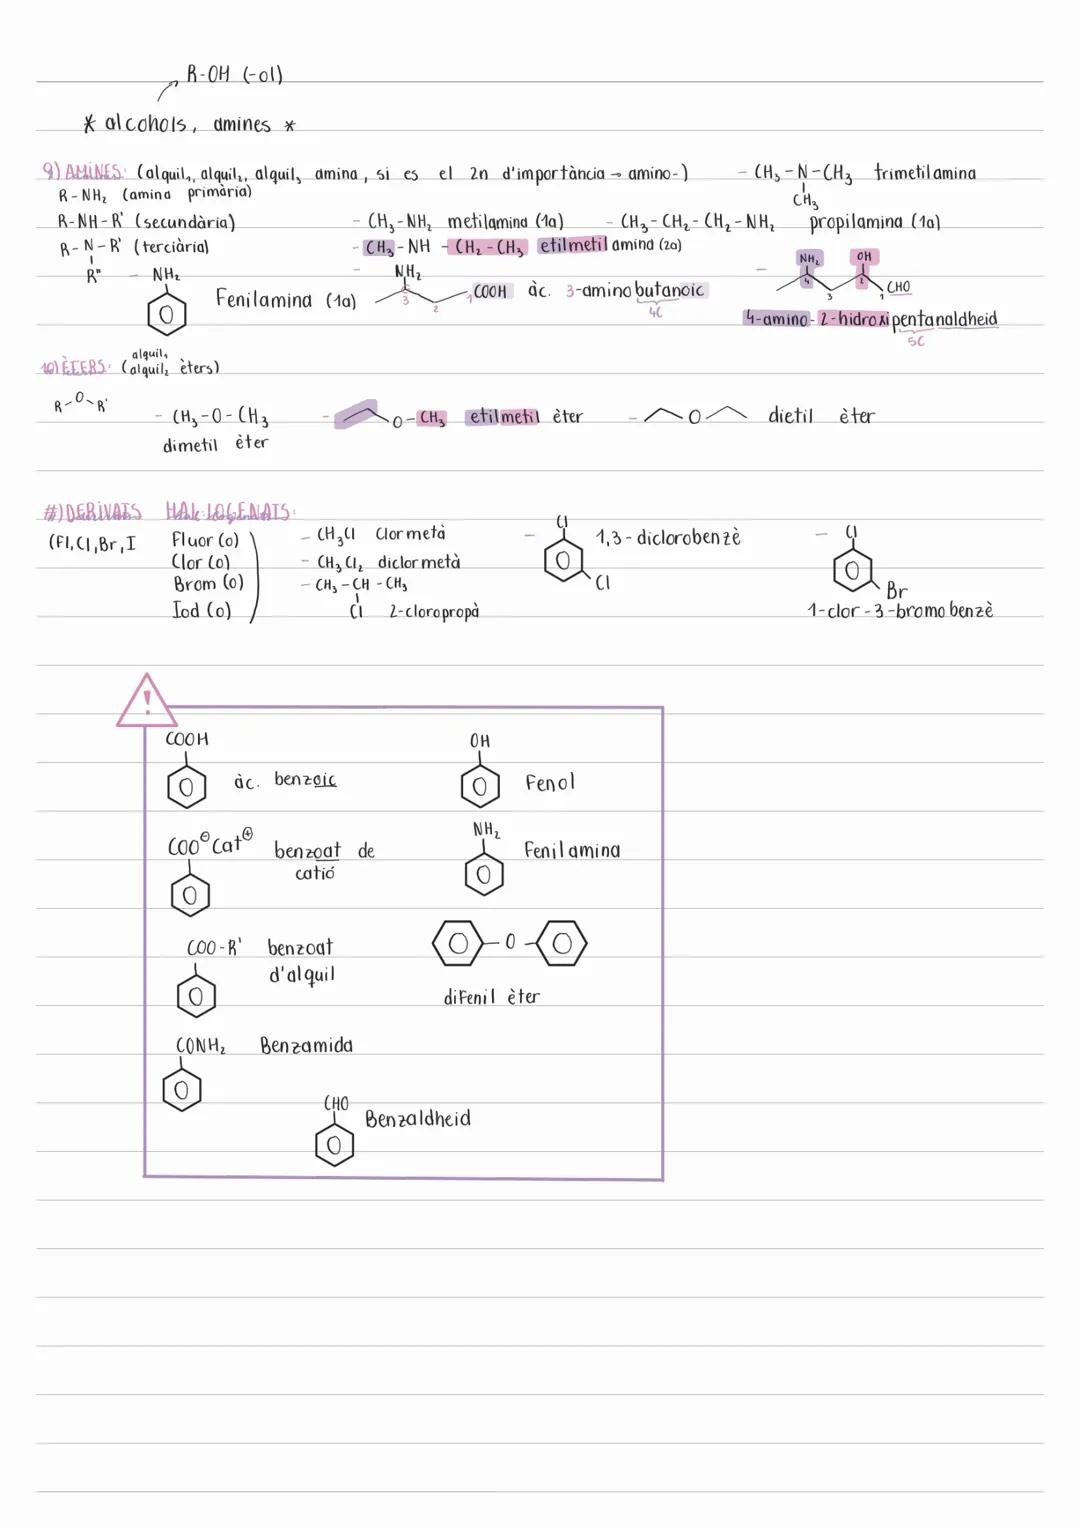 R-OH (-ol)
* alcohols, amines *
9) AMINES: (alquil₁, alquil₂, alquil₃ amina, si es el 2n d'importància → amino-)
R-NH₂ (amina primària)
R-NH-R' (secundària)
R-N-R' (terciària)
R"
- CH₃-N-CH₃ trimetilamina
CH₃
- CH₃-NH₂ metilamina (1a)
- CH₃-CH₂-CH₂-NH₂ propilamina (1a)
- CH₃-NH-CH₂-CH₃ etilmetilamina (2a)
- NH₂
Fenilamina (1a)
- NH₂
3 2 1 COOH àc. 3-aminobutanoic
4C
- NH₂ OH
4 3 2 1 CHO
4-amino-2-hidroxipentanaldheid
5C
10) ÈTERS: (alquil₁ alquil₂ èters)
R-O-R'
- CH₃-O-CH₃
dimetil èter
- O-CH₃ etilmetil èter
- O dietil èter
#) DERIVATS HAL·LOGENATS:
(Fl, Cl, Br, I
Fluor (o)
Clor (o)
Brom (o)
Iod (o)
- CH₃Cl Clormetà
- CH₃Cl₂ diclormetà
- CH₃-CH-CH₃
Cl 2-cloropropà
- Cl
Cl
1,3-diclorobenzè
- Cl
Br
1-clor-3-bromobenzè
!
COOH
àc. benzoic
OH
Fenol
COO⊖Cat⊕
benzoat de
catió
NH₂
Fenilamina
COO-R' benzoat
d'alquil
O
difenil èter
CONH₂ Benzamida
CHO
Benzaldheid